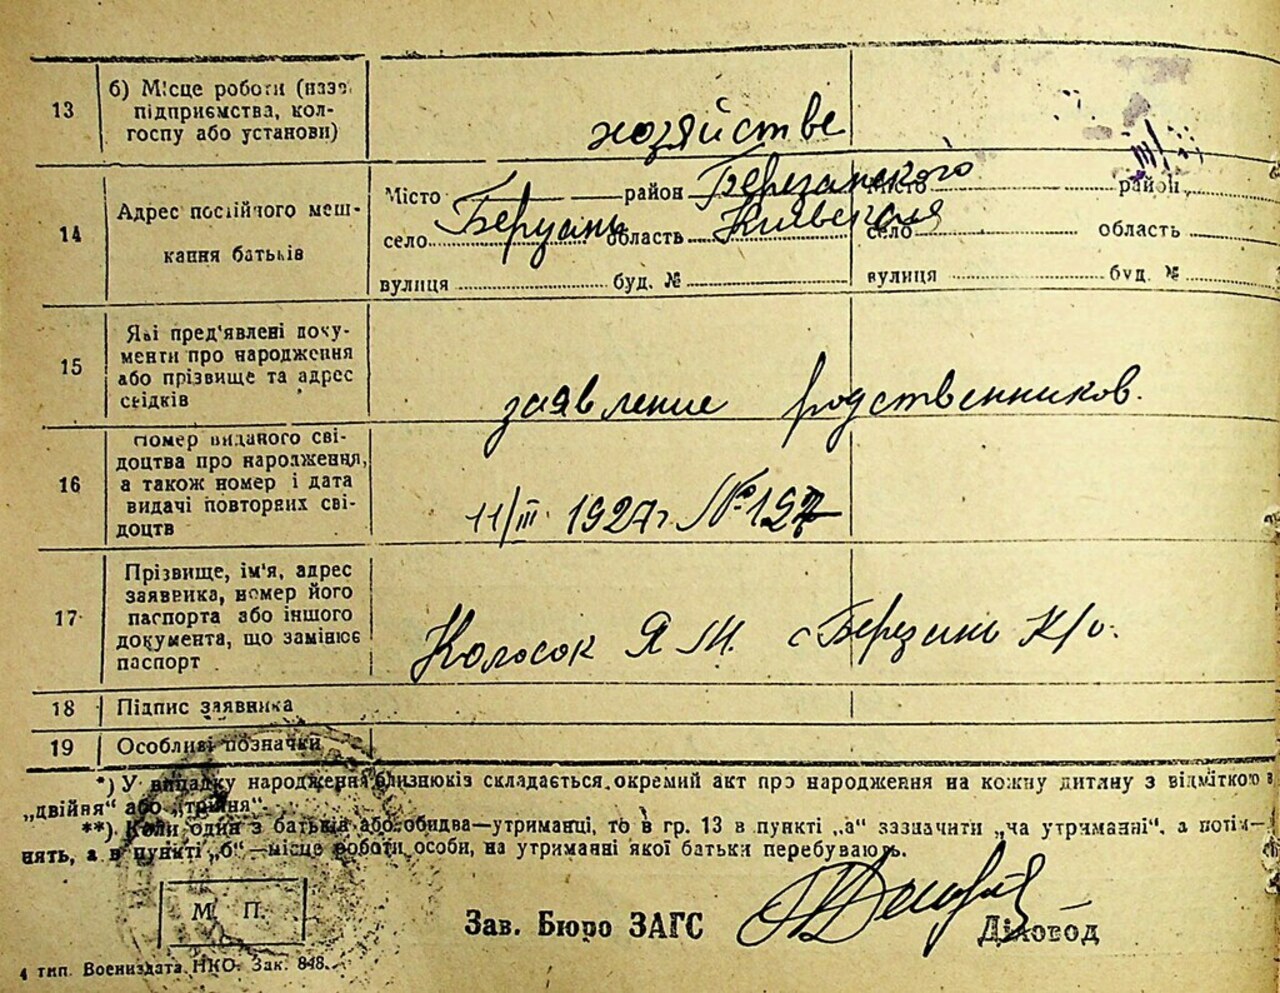 13 б) Місце роботи (назв.
підприємства, кол-
госпу або установи)
хозяйстве
14 Адрес постійного меш-
кання батьків
Місто район Березанского місто район
село Березань область Киевская село область
вулиця буд. № вулиця буд. №
15 Які пред'явлені доку-
менти про народження
або прізвище та адрес
свідків
заявление родственников.
16 Номер виданого сві-
доцтва про народження,
а також номер і дата
видачі повторних сві-
доцтв
11/III 1927г. № 127
17 Прізвище, ім'я, адрес
заявника, номер його
паспорта або іншого
документа, що замінює
паспорт
Колосок Я М. с Березань К/о.
18 Підпис заявника
19 Особливі позначки
*) У випадку народження близнюків складається окремий акт про народження на кожну дитину з відміткою в
„двійня“ або „трійня“.
**) Коли один з батьків або обидва—утриманці, то в гр. 13 в пункті „а“ зазначити „на утриманні“, а потім—
нять, а в пункті „б“—місце роботи особи, на утриманні якої батьки перебувають.
М. П.
Зав. Бюро ЗАГС Діловод
4 тип. Воениздата НКО. Зак. 848.